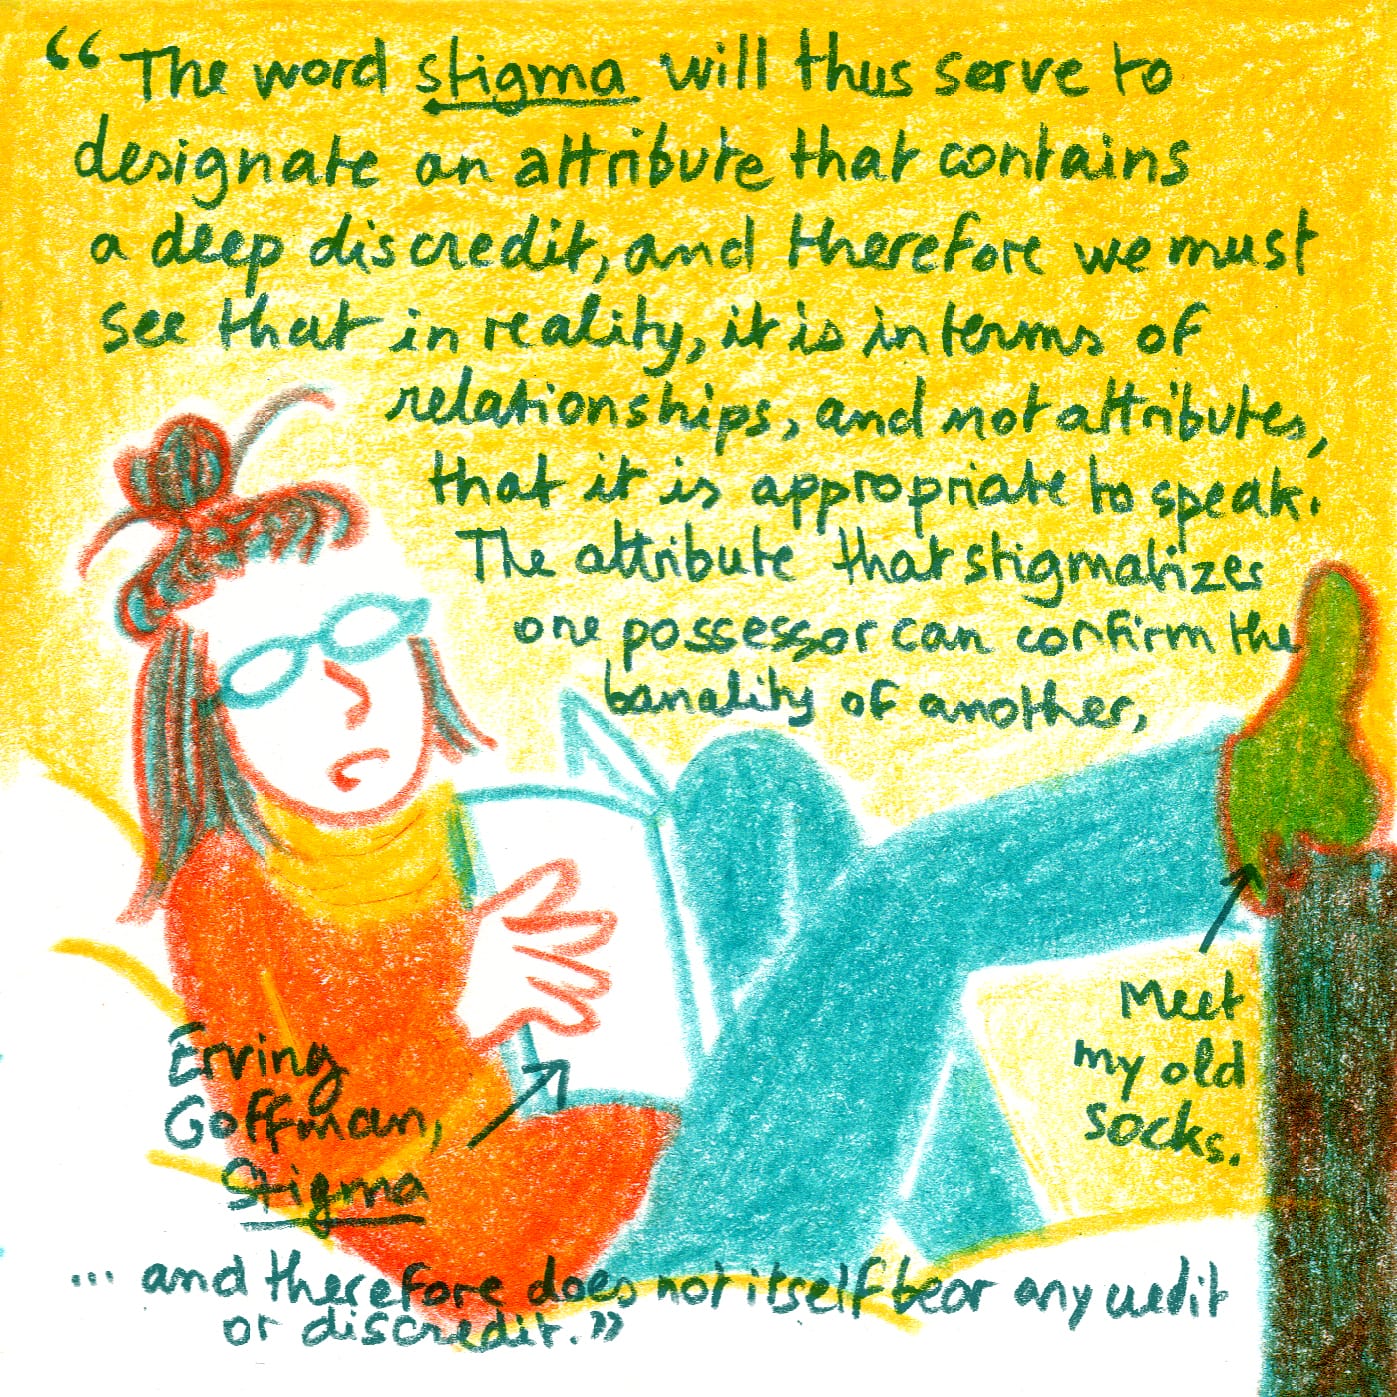 “The word stigma will thus serve to
designate an attribute that contains
a deep discredit, and therefore we must
see that in reality, it is in terms of
relationships, and not attributes,
that it is appropriate to speak.
The attribute that stigmatizes
one possessor can confirm the
banality of another,
Meet
my old
socks.
Erving
Goffman,
Stigma
... and therefore does not itself bear any credit
or discredit.”